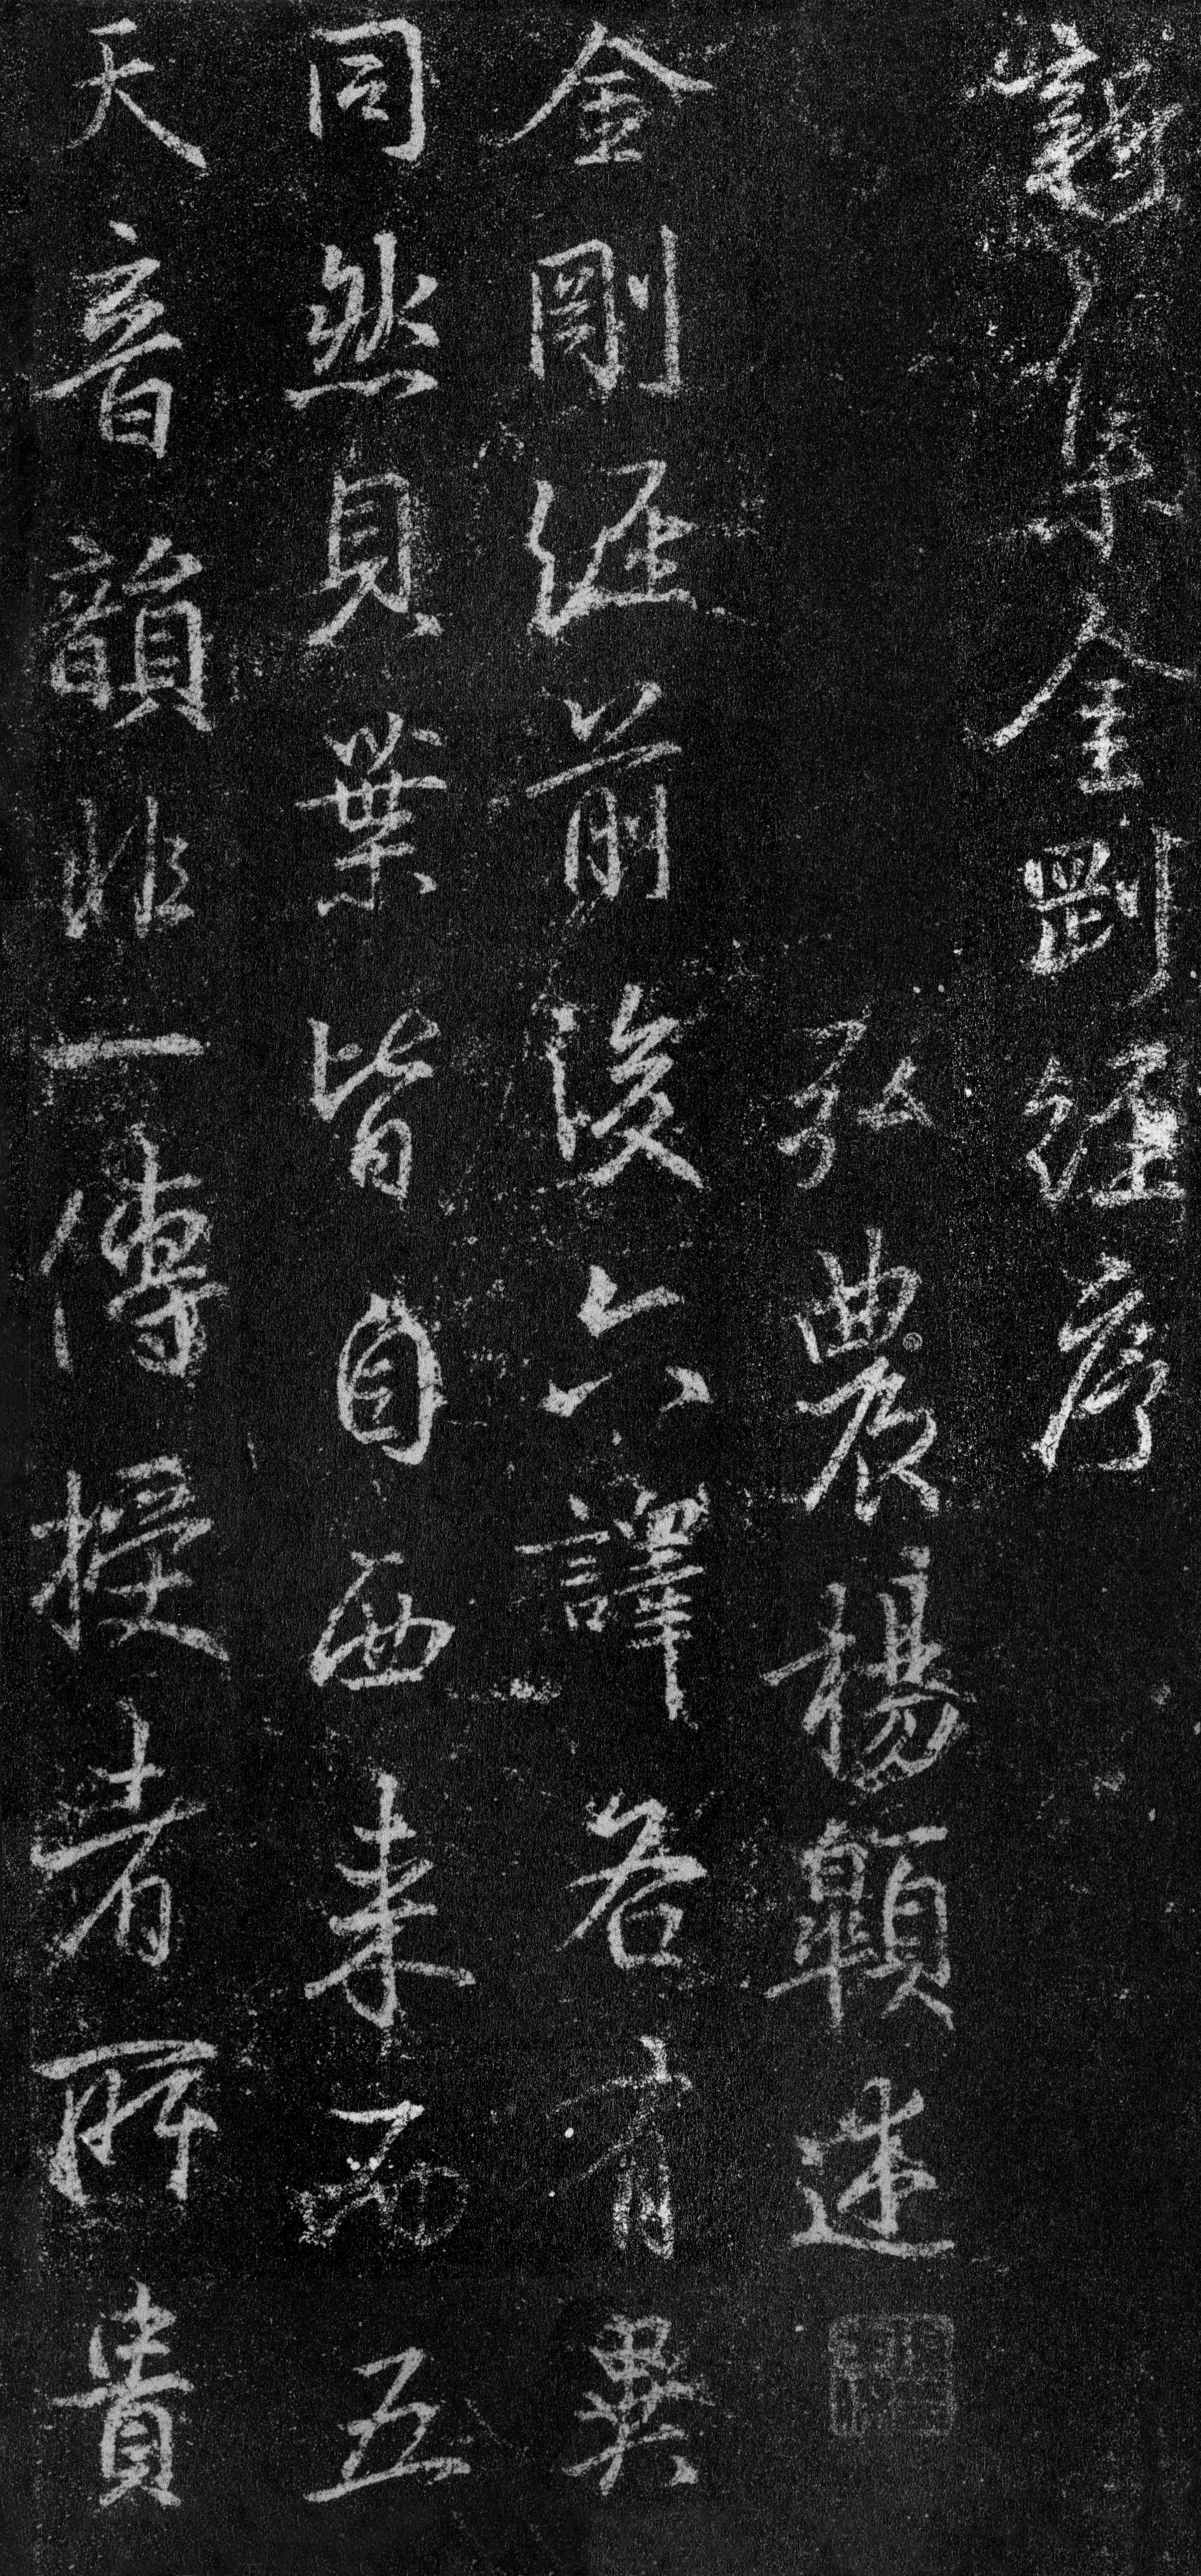 集金剛經序
弘農楊述
金剛經前後六譯各有異
同然貝葉皆自西來而五
天音韻非一傳授者所貴